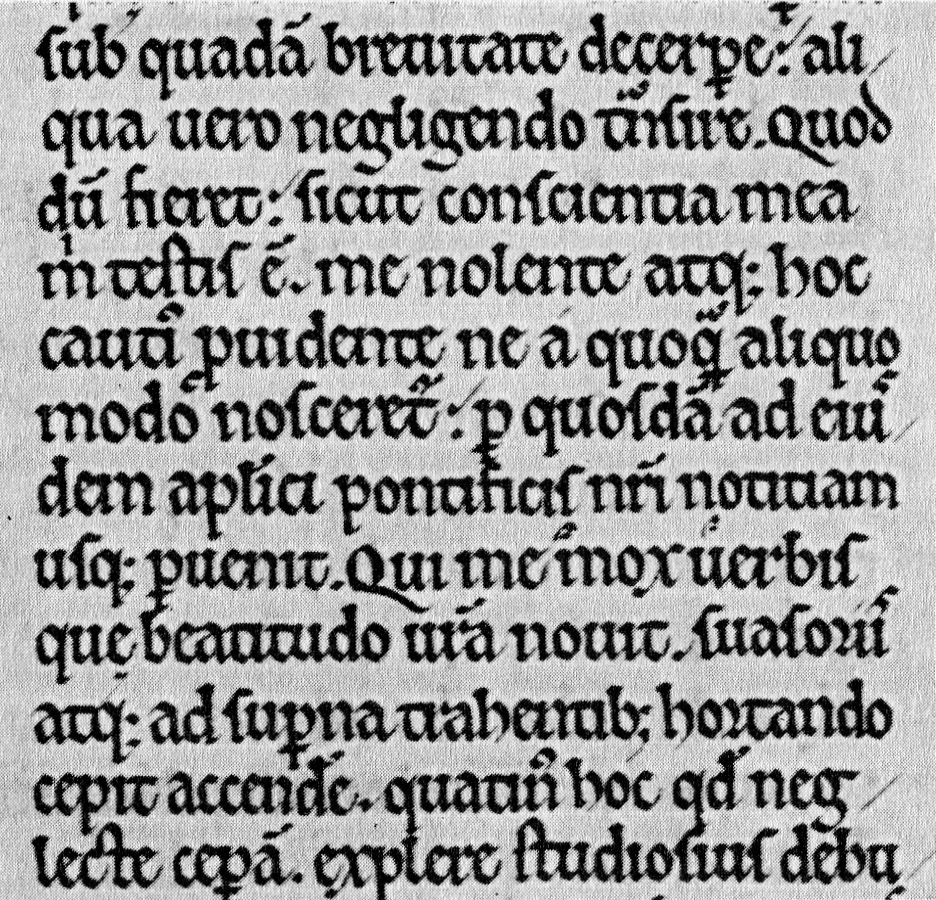 sub quadā breuitate decerpe: ali
qua uero negligendo tͣnsire. Quod
dū fieret: sicut conscientia mea
m̍ testis ē. me nolente atq; hoc
cauti᷒ ꝓuidente ne a quoqͣ aliquo
modo nosceret᷑: ꝑ quosdā ad eiu᷒
dem aplici pontificis nr̄i notitiam
usq; ꝑuenit. Qui me mox uerbis
que beatitudo ur̄a nouit. suasoriis
atq; ad suꝑna trahentib; hortando
cepit accende᷑. quatin᷒ hoc qd̄ neg
lecte ceꝑā. explere studiosius debu